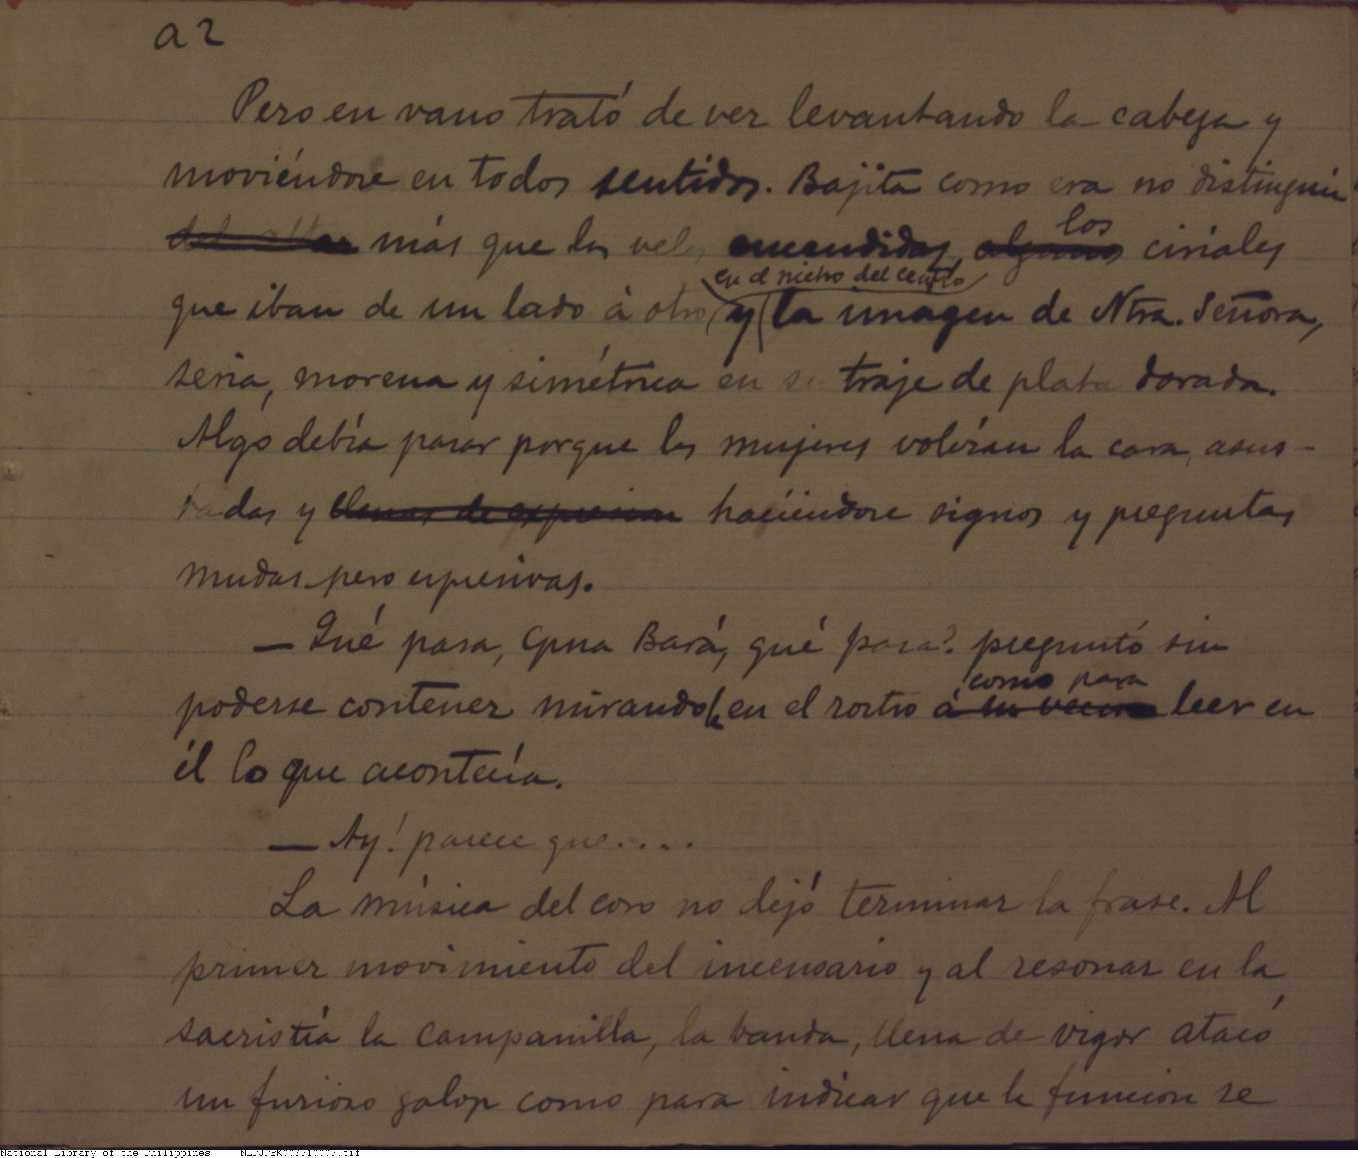 a2
Pero en vano trató de ver levantando la cabeza y
moviéndose en todos sentidos. Bajita como era no distinguia
del altar más que las velas encendidas, algunos los ciriales
en el nicho del centro
que iban de un lado á otro y la imagen de Ntra. Señora,
seria, morena y simétrica en su traje de plata dorada.
Algo debía pasar porque las mujeres volvían la cara, asus-
tadas y llenas de expresion haciéndose signos y preguntas
mudas pero espresivas.
— Qué pasa, Cpna Bará, qué pasa? preguntó sin
como para
poderse contener mirandole en el rostro á su vecina leer en
él lo que acontecía.
— Ay! parece que....
La música del coro no dejó terminar la frase. Al
primer movimiento del incensario y al resonar en la
sacristía la campanilla, la banda, llena de vigor atacó
un furioso galop como para indicar que la funcion se
National Library of the Philippines